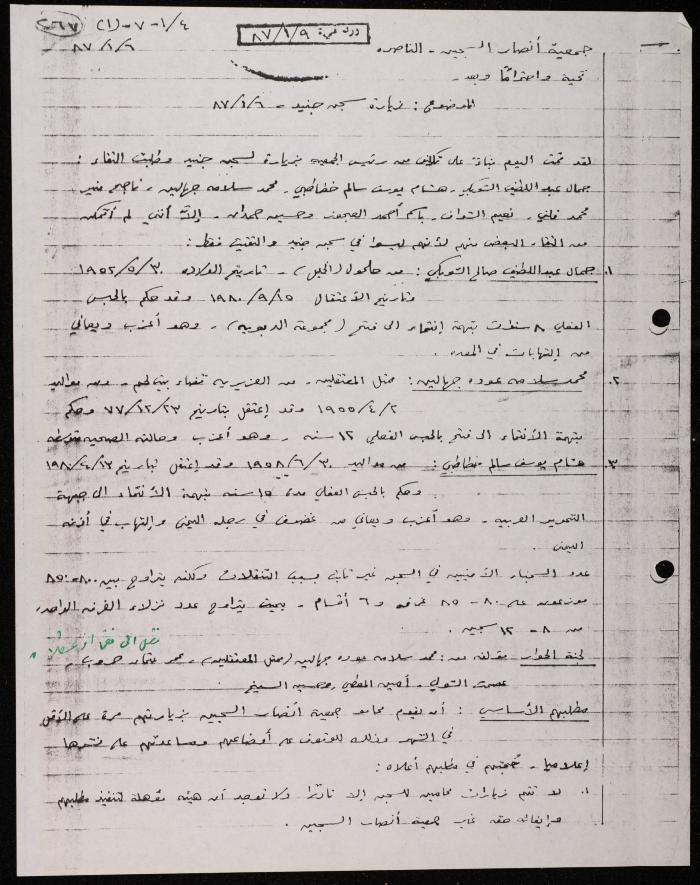 ٤/١-٧-(١)
٨٧/١/٦
ورد في: ٨٧/١/٩
جمعية أنصار السجين - الناصره
تحية واحترامًا وبعد -
الموضوع: زيارة سجن جنيد - ٨٧/١/٦
لقد قمت اليوم بناءً على تكليف من رئيس الجمعيه بزيارة لسجن جنيد وطلبت التقاء:
جمال عبد اللطيف الشوبكي - هشام يوسف سالم - محمد سلامه جهالين - ناصح منير
محمد - نعيم - باسم أحمد العجوز وحسين حمدان - إلاّ أنني لم أتمكن
من التقاء البعض منهم لأنهم ليسوا في سجن جنيد والتقيت فقط:
١. جمال عبد اللطيف صالح الشوبكي: من حلحول (الخليل) - تاريخ الولاده ١٩٥٢/٥/٣٠
وتاريخ الأعتقال ١٩٨٠/٩/١٥ وقد حكم بالحبس
الفعلي ٨ سنوات بتهمة إنتماء الى فتح (مجموعة الدبويه) - وهو أعزب ويعاني
من إلتهابات في المعده.
٢. محمد سلامه عوده جهالين: ممثل المعتقلين - من العزيريه قضاء بيت لحم - ومن مواليد
١٩٥٥/٤/٢ وقد إعتقل بتاريخ ٧٧/١٢/٢٣ وحكم
بتهمة الأنتماء الى فتح بالحبس الفعلي ١٢ سنه - وهو أعزب وحالته الصحيه متوسطه
٣. هشام يوسف سالم: من مواليد ١٩٥٨/٦/٣٠ وقد إعتقل بتاريخ ١٩٨٠/٤/١٣
وحكم بالحبس الفعلي مدة ١٥ سنه بتهمة الأنتماء الى جبهة
التحرير العربيه - وهو أعزب ويعاني من غضروف في رجله اليمنى وإلتهاب في أذنه
اليمنى.
عدد السجناء الأمنيين في السجن غير ثابت بسبب التنقلات ولكنه يتراوح بين ٨٠٠-٨٥٠
موزعون على ٨٠-٨٥ غرفه و٦ أقسام - بحيث يتراوح عدد نزلاء الغرفه الواحده
من ٨-١٢ سجين.
نقل الى
لجنة الحوار مؤلفه من: محمد سلامه عوده جهالين (ممثل المعتقلين) - عمر
- أمين وحسين الشيخ.
مطلبهم الأساسي: أن يقوم محامو جمعية أنصار السجين بزيارتهم مرة على الأقل
في الشهر وذلك للوقوف على أوضاعهم ومساعدتهم على نشرها
إعلاميا - حجتهم في مطلبهم أعلاه:
١. لا تتم زيارات محامين للسجن إلا نادرًا ولا توجد أي هيئه مؤهلة لتنفيذ مطلبهم
وإيفائه حقه غير جمعية أنصار السجين.